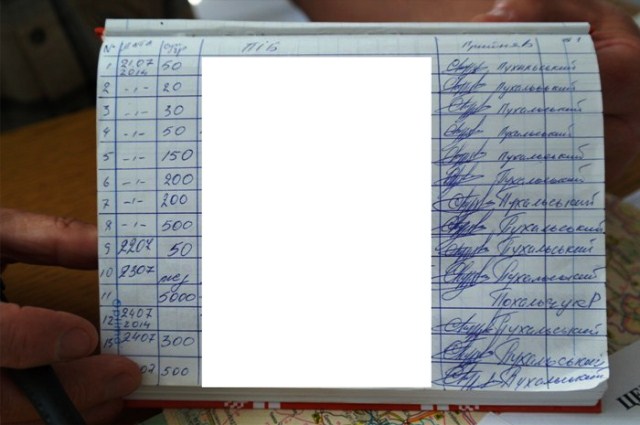 № Дата Сума ПІБ Прийняв
1 21.07 2014 50 Пухальський
2 -"- 20 Пухальський
3 -"- 30 Пухальський
4 -"- 50 Пухальський
5 -"- 150 Пухальський
6 -"- 200 Пухальський
7 -"- 200 Пухальський
8 -"- 500 Пухальський
9 2207 50 Пухальський
10 2307 Пухальський
11 5000 Похальчук Р
12 2407 2014 Пухальський
13 2407 300 Пухальський
07 500 Пухальський
ЦЕ